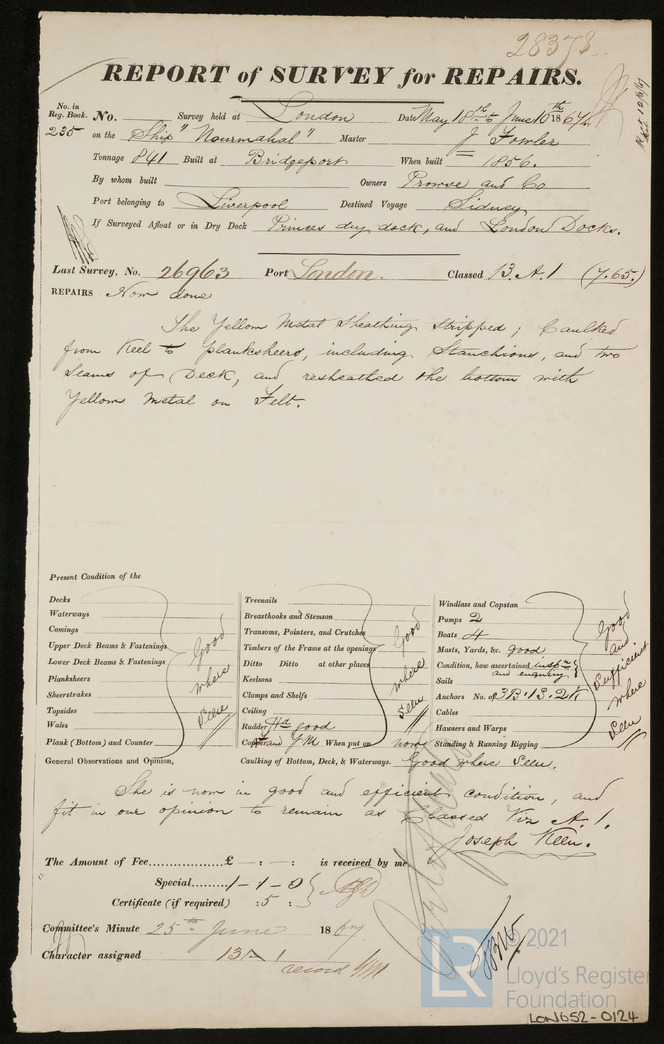 28373
REPORT of SURVEY for REPAIRS.
No. in Reg. Book. No. Survey held at London Date May 18th to June 10th 1867
235 on the Ship "Nourmahal" Master J Fowler
Tonnage 841 Built at Bridgeport When built 1856.
By whom built Owners Prowse and Co
Port belonging to Liverpool Destined Voyage Sidney
If Surveyed Afloat or in Dry Dock Princes dry dock, and London Docks.
Last Survey, No. 26963 Port London. Classed 13. A. 1 (7.65.)
REPAIRS Now done
The Yellow Metal Sheathing stripped; Caulked
from Keel to planksheers, including Stanchions, and two
Seams of Deck, and resheathed the bottom with
Yellow Metal on Felt.
Present Condition of the
Decks
Waterways
Comings
Upper Deck Beams & Fastenings
Lower Deck Beams & Fastenings
Planksheers
Sheerstrakes
Topsides
Wales
Plank (Bottom) and Counter
Good where Seen
Treenails
Breasthooks and Stemson
Transoms, Pointers, and Crutches
Timbers of the Frame at the openings
Ditto Ditto at other places
Keelsons
Clamps and Shelfs
Ceiling
Rudder good
Copper and YM When put on now
Good where Seen
Windlass and Capstan
Pumps 2
Boats 4
Masts, Yards, &c. good
Condition, how ascertained inspn and enquiry
Sails
Anchors No. of 3B. 1S. 2K
Cables
Hausers and Warps
Standing & Running Rigging
Good and Sufficient where Seen
General Observations and Opinion, Caulking of Bottom, Deck, & Waterways. Good where Seen.
She is now in good and efficient condition, and
fit in our opinion to remain as Classed Viz A. 1.
Joseph Keen.
The Amount of Fee £ - : - : is received by me
Special 1-1-0
Certificate (if required) : 5 :
Committee's Minute 25th June 1867
Character assigned 13 A 1
record YM
© 2021
LR
Lloyd's Register
Foundation
LON652-0124